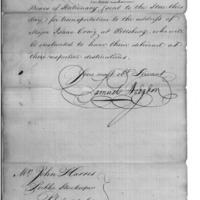 Boxes of Stationary (sent to the Stores this
day) for transportation to the address of
Major Isaac Craig at Pittsburg, who will
be instructed to have them delivered at
their respective destinations.
Your most Obt Servant
Samuel Hodgdon
Mr John Harris
Public Storekeeper